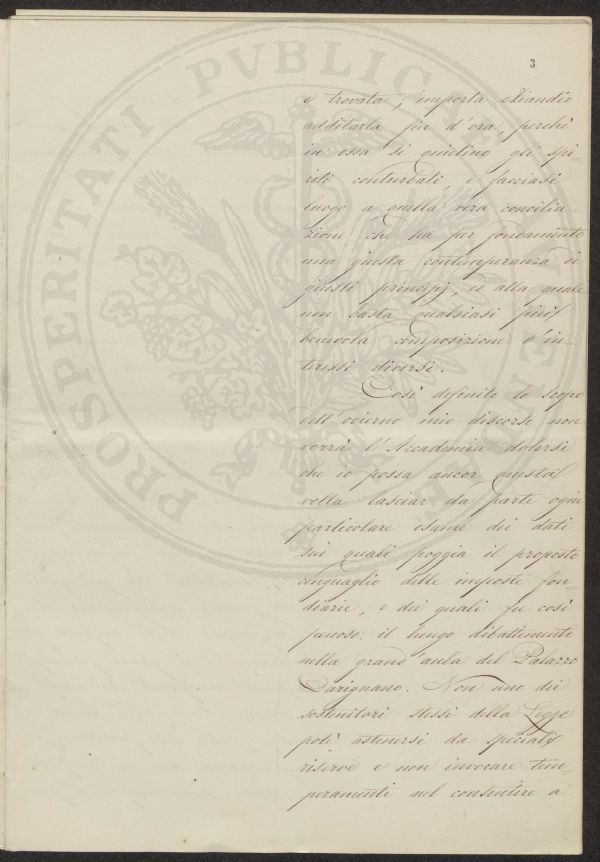 3
e trovata; importa eziandio
additarla fin d'ora, perchè
in essa si quietino gli spi-
riti conturbati, e facciasi
luogo a quella vera concilia-
zione che ha per fondamento
una giusta contemperanza di
giusti principj, e alla quale
non basta qualsiasi più
benevola composizione d'in-
teressi diversi.
Così definito lo scopo
dell'odierno mio discorso non
vorrà l'Accademia dolersi
che io possa ancor questa
volta lasciar da parte ogni
particolare esame dei dati
sui quali poggia il proposto
conguaglio delle imposte fon-
diarie, e dei quali fu così
penoso il lungo dibattimento
nella grand'aula del Palazzo
Carignano. Non uno dei
sostenitori stessi della Legge
potè astenersi da speciali
riserve e non invocare tem-
peramenti nel consentire a
PROSPERITATI PVBLICAE